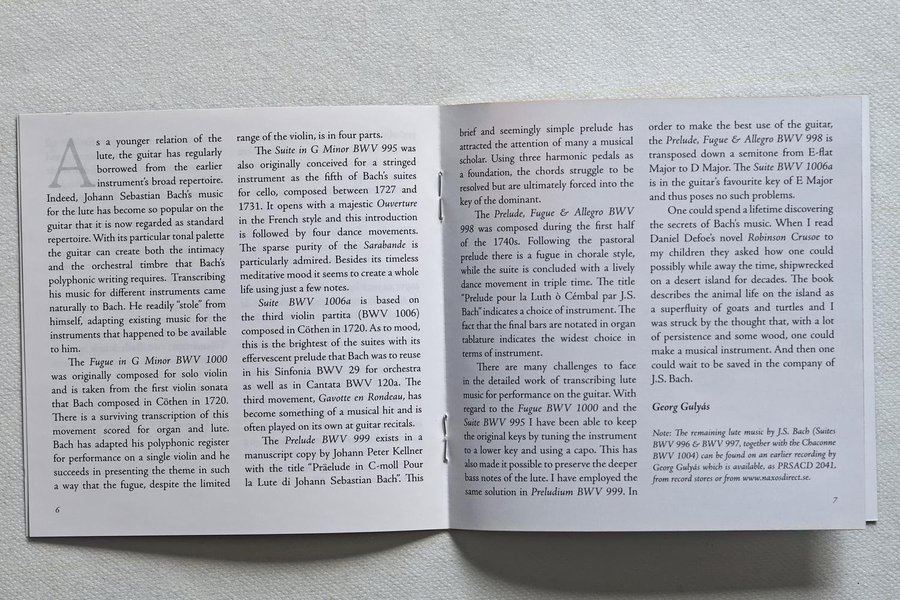 As a younger relation of the
lute, the guitar has regularly
borrowed from the earlier
instrument's broad repertoire.
Indeed, Johann Sebastian Bach's music
for the lute has become so popular on the
guitar that it is now regarded as standard
repertoire. With its particular tonal palette
the guitar can create both the intimacy
and the orchestral timbre that Bach's
polyphonic writing requires. Transcribing
his music for different instruments came
naturally to Bach. He readily "stole" from
himself, adapting existing music for the
instruments that happened to be available
to him.
The Fugue in G Minor BWV 1000
was originally composed for solo violin
and is taken from the first violin sonata
that Bach composed in Cöthen in 1720.
There is a surviving transcription of this
movement scored for organ and lute.
Bach has adapted his polyphonic register
for performance on a single violin and he
succeeds in presenting the theme in such
a way that the fugue, despite the limited
range of the violin, is in four parts.
The Suite in G Minor BWV 995 was
also originally conceived for a stringed
instrument as the fifth of Bach's suites
for cello, composed between 1727 and
1731. It opens with a majestic Ouverture
in the French style and this introduction
is followed by four dance movements.
The sparse purity of the Sarabande is
particularly admired. Besides its timeless
meditative mood it seems to create a whole
life using just a few notes.
Suite BWV 1006a is based on
the third violin partita (BWV 1006)
composed in Cöthen in 1720. As to mood,
this is the brightest of the suites with its
effervescent prelude that Bach was to reuse
in his Sinfonia BWV 29 for orchestra
as well as in Cantata BWV 120a. The
third movement, Gavotte en Rondeau, has
become something of a musical hit and is
often played on its own at guitar recitals.
The Prelude BWV 999 exists in a
manuscript copy by Johann Peter Kellner
with the title "Präelude in C-moll Pour
la Lute di Johann Sebastian Bach". This
6
brief and seemingly simple prelude has
attracted the attention of many a musical
scholar. Using three harmonic pedals as
a foundation, the chords struggle to be
resolved but are ultimately forced into the
key of the dominant.
The Prelude, Fugue & Allegro BWV
998 was composed during the first half
of the 1740s. Following the pastoral
prelude there is a fugue in chorale style,
while the suite is concluded with a lively
dance movement in triple time. The title
"Prelude pour la Luth ò Cémbal par J.S.
Bach" indicates a choice of instrument. The
fact that the final bars are notated in organ
tablature indicates the widest choice in
terms of instrument.
There are many challenges to face
in the detailed work of transcribing lute
music for performance on the guitar. With
regard to the Fugue BWV 1000 and the
Suite BWV 995 I have been able to keep
the original keys by tuning the instrument
to a lower key and using a capo. This has
also made it possible to preserve the deeper
bass notes of the lute. I have employed the
same solution in Preludium BWV 999. In
order to make the best use of the guitar,
the Prelude, Fugue & Allegro BWV 998 is
transposed down a semitone from E-flat
Major to D Major. The Suite BWV 1006a
is in the guitar's favourite key of E Major
and thus poses no such problems.
One could spend a lifetime discovering
the secrets of Bach's music. When I read
Daniel Defoe's novel Robinson Crusoe to
my children they asked how one could
possibly while away the time, shipwrecked
on a desert island for decades. The book
describes the animal life on the island as
a superfluity of goats and turtles and I
was struck by the thought that, with a lot
of persistence and some wood, one could
make a musical instrument. And then one
could wait to be saved in the company of
J.S. Bach.
Georg Gulyás
Note: The remaining lute music by J.S. Bach (Suites
BWV 996 & BWV 997, together with the Chaconne
BWV 1004) can be found on an earlier recording by
Georg Gulyás which is available, as PRSACD 2041,
from record stores or from www.naxosdirect.se.
7